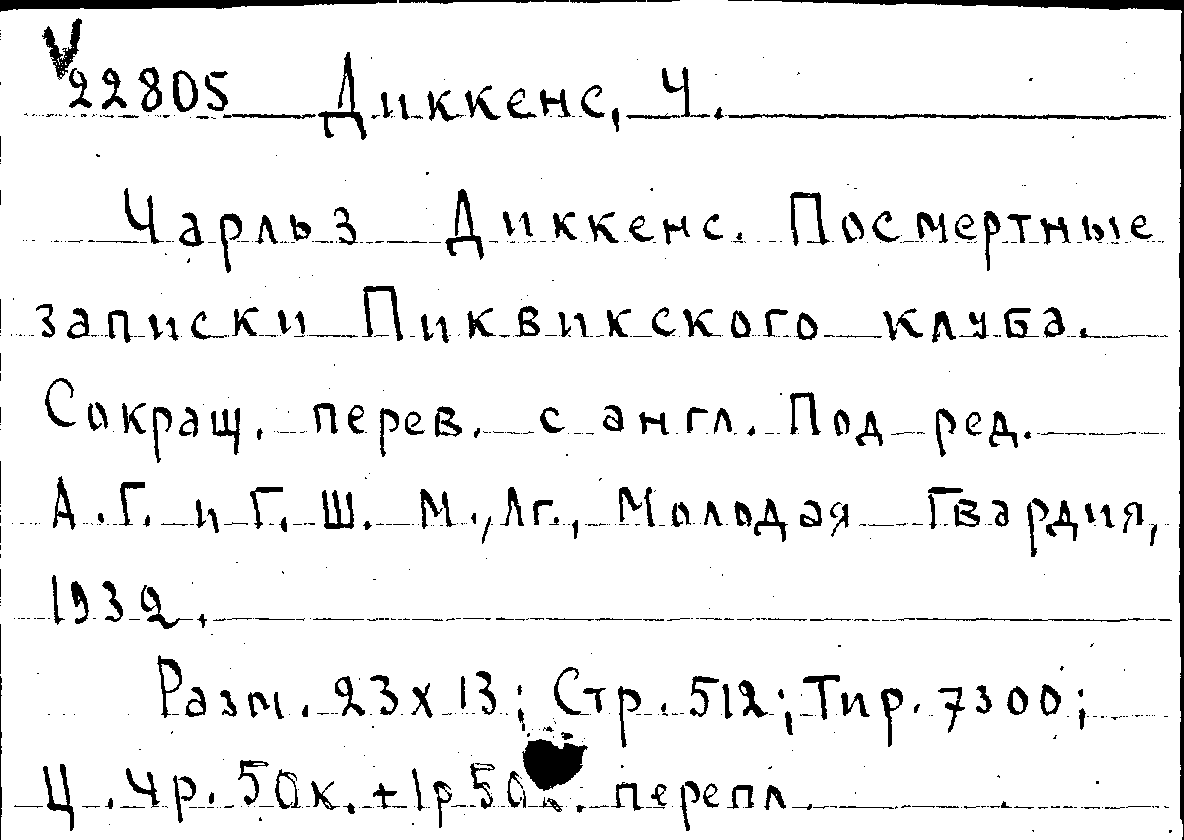 22805 Диккенс, Ч.
Чарльз Диккенс. Посмертные
записки Пиквикского клуба.
Сокращ. перев. с англ. Под ред.
А.Г. и Г.Ш. М.,Лг., Молодая Гвардия,
1932.
Разм. 23х13; Стр. 512; Тир. 7300;
Ц. 4р. 50к. + 1р 50к. перепл.